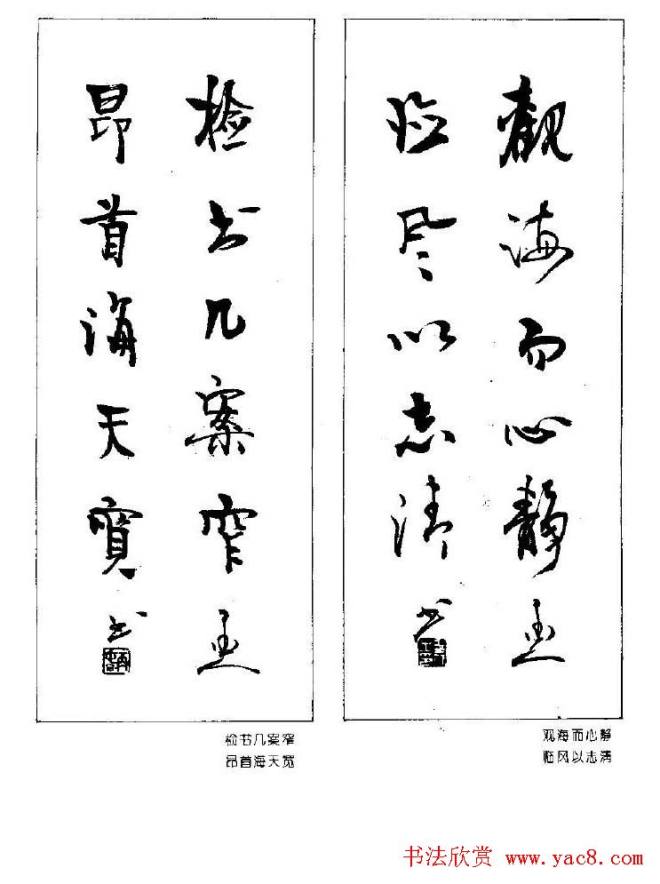 觀海而心靜
临风以志清 书
检书几案窄
昂首海天寬 书
观海而心静
临风以志清
检书几案窄
昂首海天宽
书法欣赏 www.yac8.com